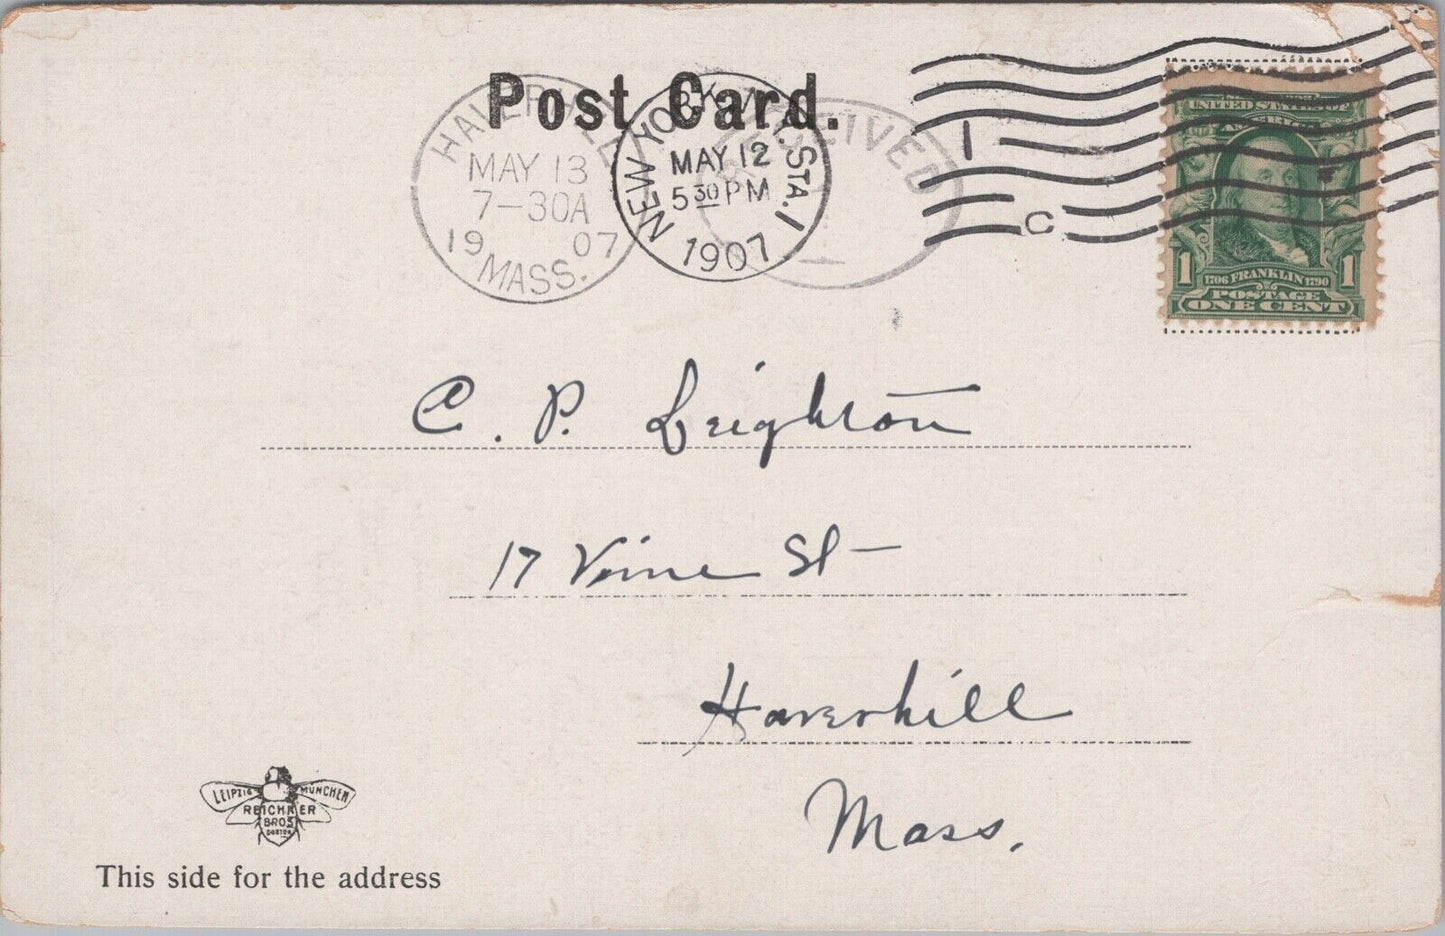 Post Card.
HAVERHILL
MAY 13
7-30A
19 07
MASS.
NEW YORK, N.Y. STA. I
MAY 12
5 30 PM
1907
RECEIVED
1
C
UNITED STATES OF
AMERICA
1 1
1706 FRANKLIN 1790
POSTAGE
ONE CENT
C. P. Leighton
17 Vine St—
Haverhill
Mass.
LEIPZIG MÜNCHEN
REICHNER
BROS
BOSTON
This side for the address